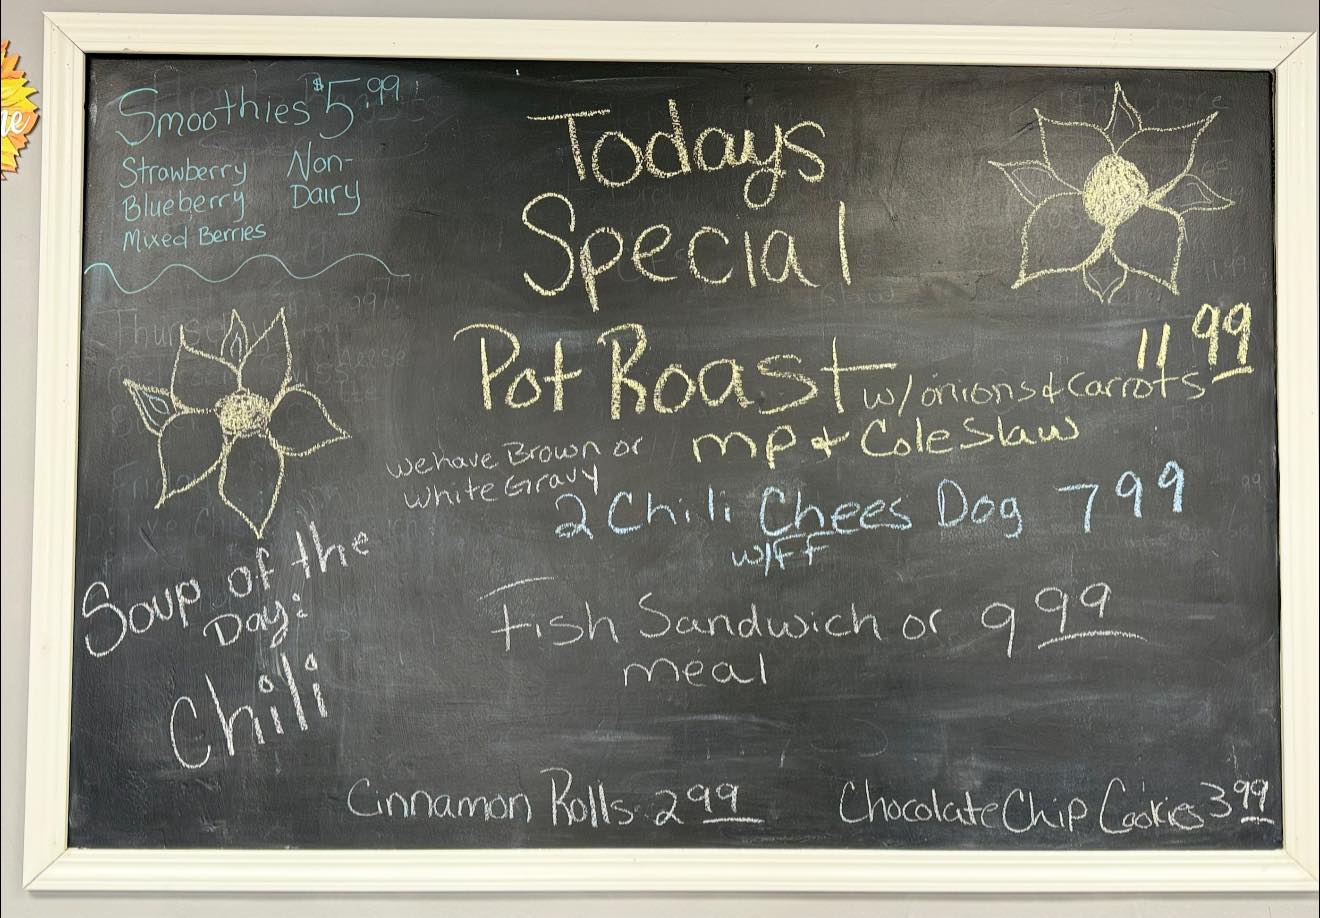 Smoothies $5.99
Strawberry Non-
Blueberry Dairy
Mixed Berries
Todays
Special
Pot Roast 11 99
w/onions & carrots
mp & Coleslaw
we have Brown or
white Gravy
2 Chili Chees Dog 7 99
w/FF
Fish Sandwich or 9 99
meal
Soup of the
Day:
Chili
Cinnamon Rolls 2 99
Chocolate Chip Cookies 3 99